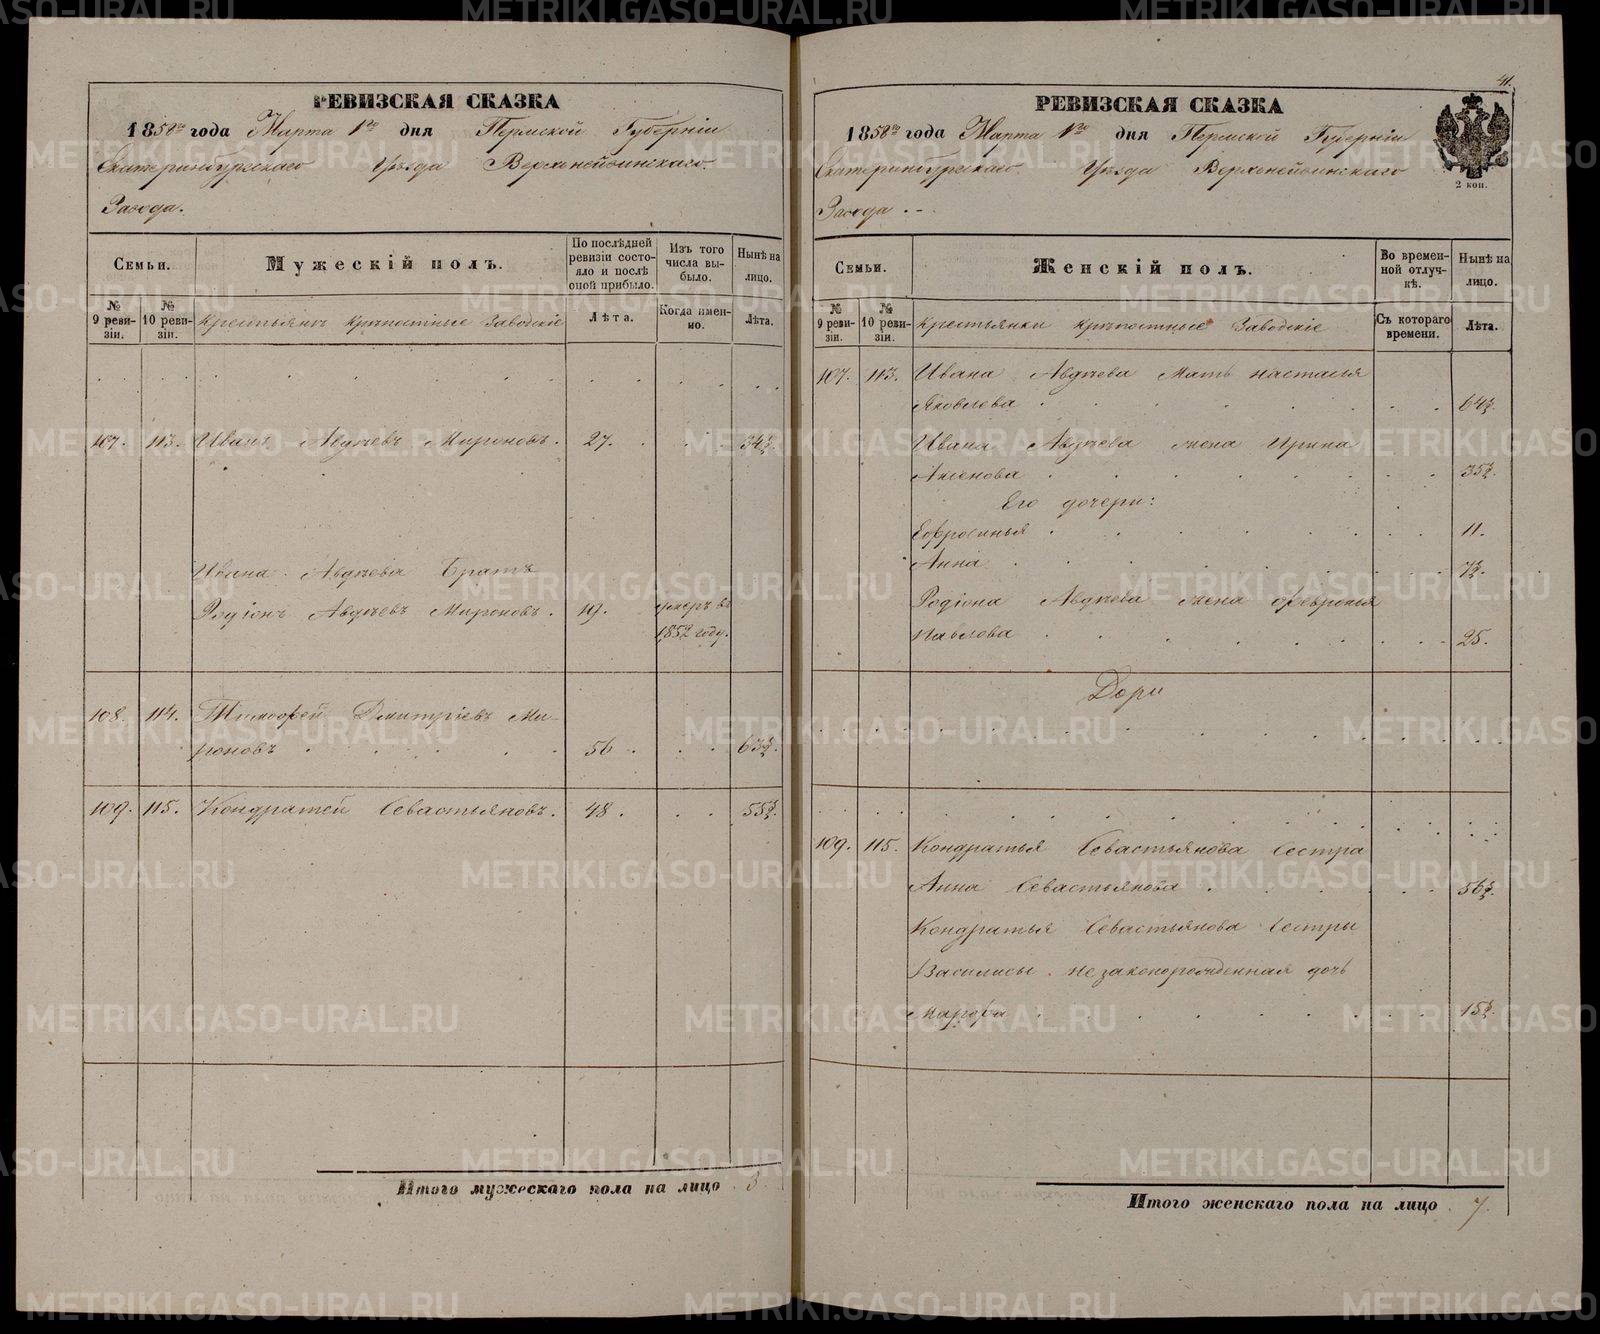 РЕВИЗСКАЯ СКАЗКА
1858го года Марта 1го дня Пермской Губернiи
Екатеринбургскаго Уѣзда Верхнейвинскаго
Завода.
Семьи.
Мужескiй полъ.
По послѣдней ревизiи состояло и послѣ оной прибыло.
Изъ того числа выбыло.
Нынѣ на лицо.
№ 9 ревизiи.
№ 10 ревизiи.
Крестьянъ крѣпостные Заводскiе
Лѣта.
Когда именно.
Лѣта.
107. 113. Иванъ Авдѣевъ Мироновъ. 27. 34½.
Ивана Авдѣева Братъ
Родiонъ Авдѣевъ Мироновъ. 19. умеръ въ
1852 году.
108. 114. Тимофей Дмитрiевъ Ми-
роновъ 56. 63½.
109. 115. Кондратей Севастьяновъ. 48. 55½.
Итого мужескаго пола на лицо 3.
41.
РЕВИЗСКАЯ СКАЗКА
1858го года Марта 1го дня Пермской Губернiи
Екатеринбургскаго Уѣзда Верхнейвинскаго
Завода
2 коп.
Семьи.
Женскiй полъ.
Во временной отлучкѣ.
Нынѣ на лицо.
№ 9 ревизiи.
№ 10 ревизiи.
Крестьянки крѣпостные Заводскiе
Съ котораго времени.
Лѣта.
107. 113. Ивана Авдѣева Мать Настасья
Яковлева 64½.
Ивана Авдѣева жена Ирина
Аксенова 35½.
Его дочери:
Ефросинья 11.
Анна 7½.
Родiона Авдѣева жена Февронья
Павлова 25.
109. 115. Кондратья Севастьянова Сестра
Анна Севастьянова 56½.
Кондратья Севастьянова Сестры
Василисы незаконорожденная дочь
Марфа 15½.
Итого женскаго пола на лицо 7.
METRIKI.GASO-URAL.RU